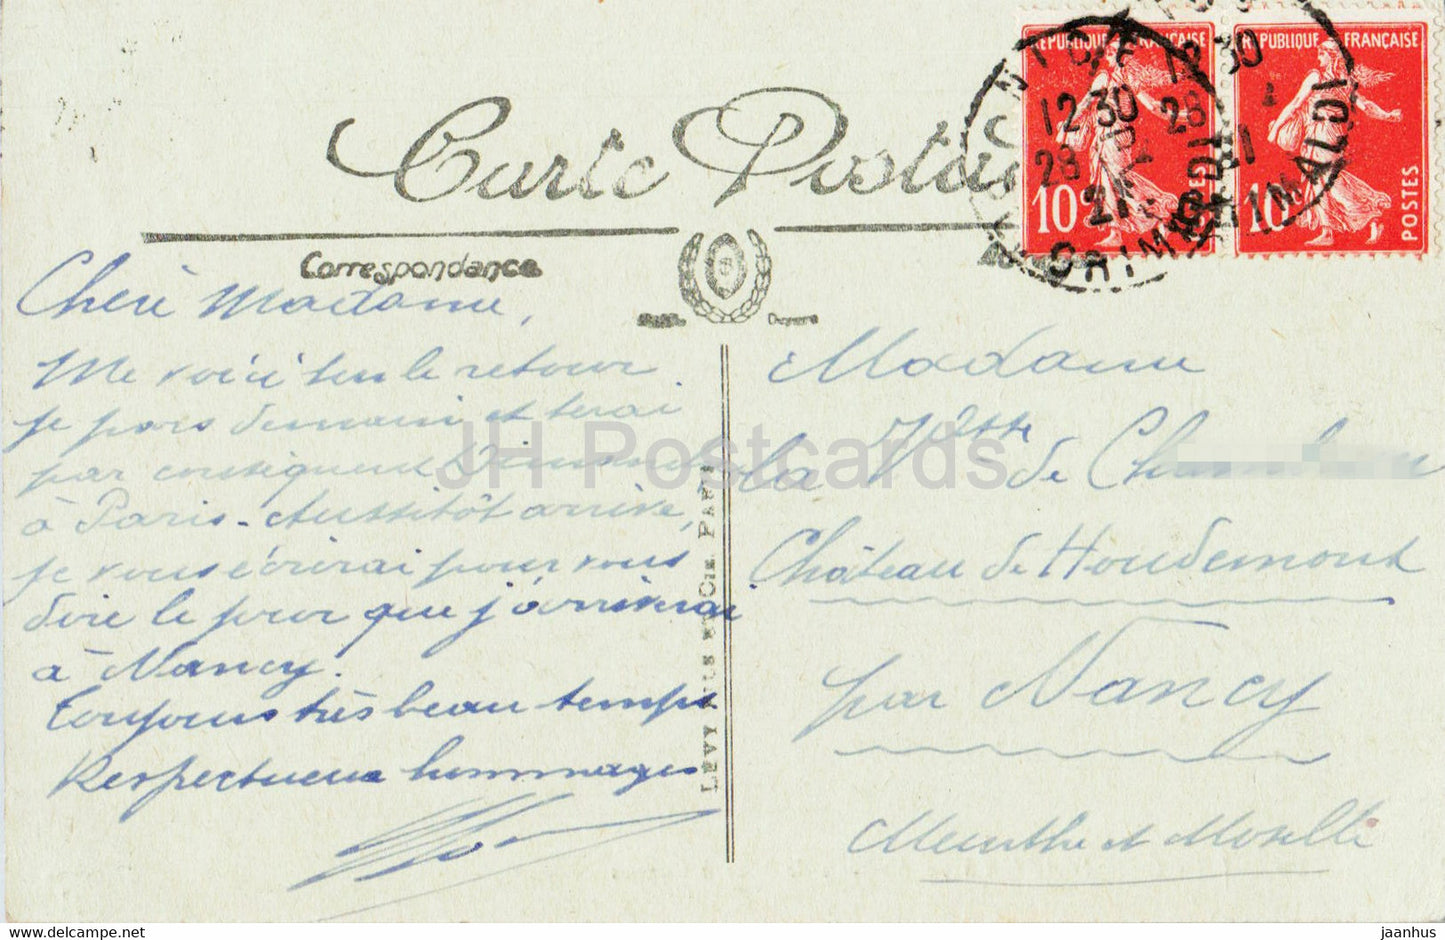 Carte Postale
Correspondance
Chère Madame,
Me voici sur le retour
je pars demain et serai
par conséquent Dimanche
à Paris. Aussitôt arrivé,
je vous écrirai pour vous
dire le jour que j'arriverai
à Nancy.
Toujours très beau temps
Respectueux hommages
LEVY FILS ET CIE. PARIS
REPUBLIQUE FRANÇAISE
10c
REPUBLIQUE FRANÇAISE
10c POSTES
NICE
12 30
28
21
GRIMALDI
12 30
28
GRIMALDI
Madame
la Vtesse de
Château de Houdemont
par Nancy
Meurthe et Moselle
JH Postcards
https://www.jaanhus.com/
jaanhus